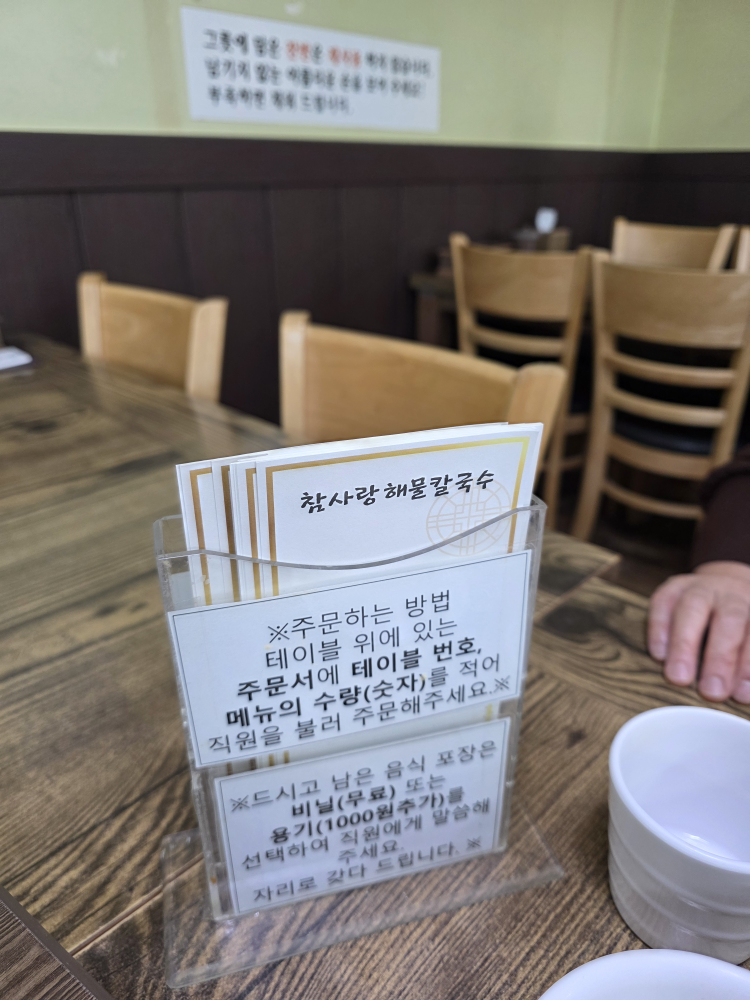 그릇에 담은 반찬은 재사용 하지 않습니다.
남기지 않는
부족하면 더 드립니다.
참사랑해물칼국수
※주문하는 방법
테이블 위에 있는
주문서에 테이블 번호,
메뉴의 수량(숫자)를 적어
직원을 불러 주문해주세요.※
※드시고 남은 음식 포장은
비닐(무료) 또는
용기(1000원추가)를
선택하여 직원에게 말씀해
주세요.
자리로 갖다 드립니다. ※